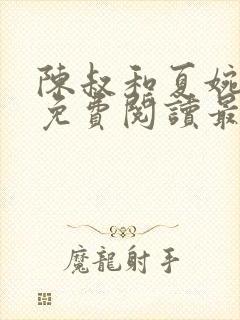 陳叔和夏婉
免費閱讀最
魔龍射手